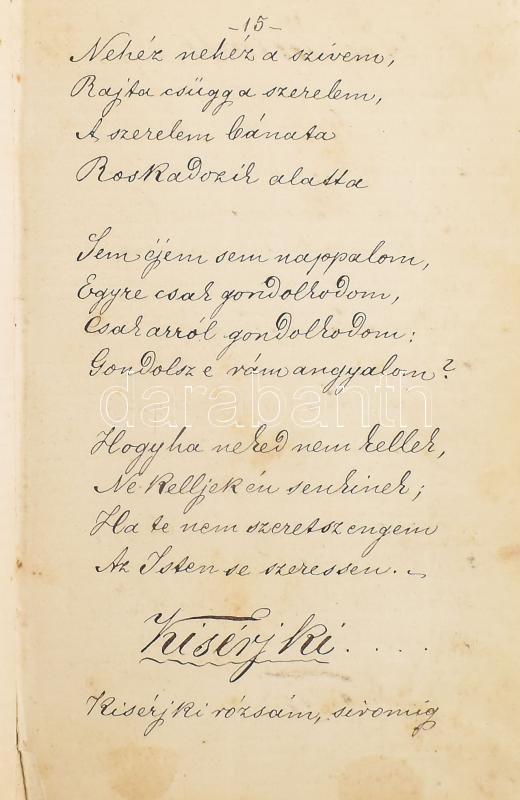 -15-
Nehéz nehéz a szivem,
Rajta csügg a szerelem,
A szerelem bánata
Roskadozik alatta
Sem éjem sem nappalom,
Egyre csak gondolkodom,
Csak arról gondolkodom:
Gondolsz e rám angyalom?
darabanth
Hogyha neked nem kellek,
Ne kelljek én senkinek;
Ha te nem szeretsz engem
Az Isten se szeressen.
Kisérj ki.....
Kisérj ki rózsám, siromig